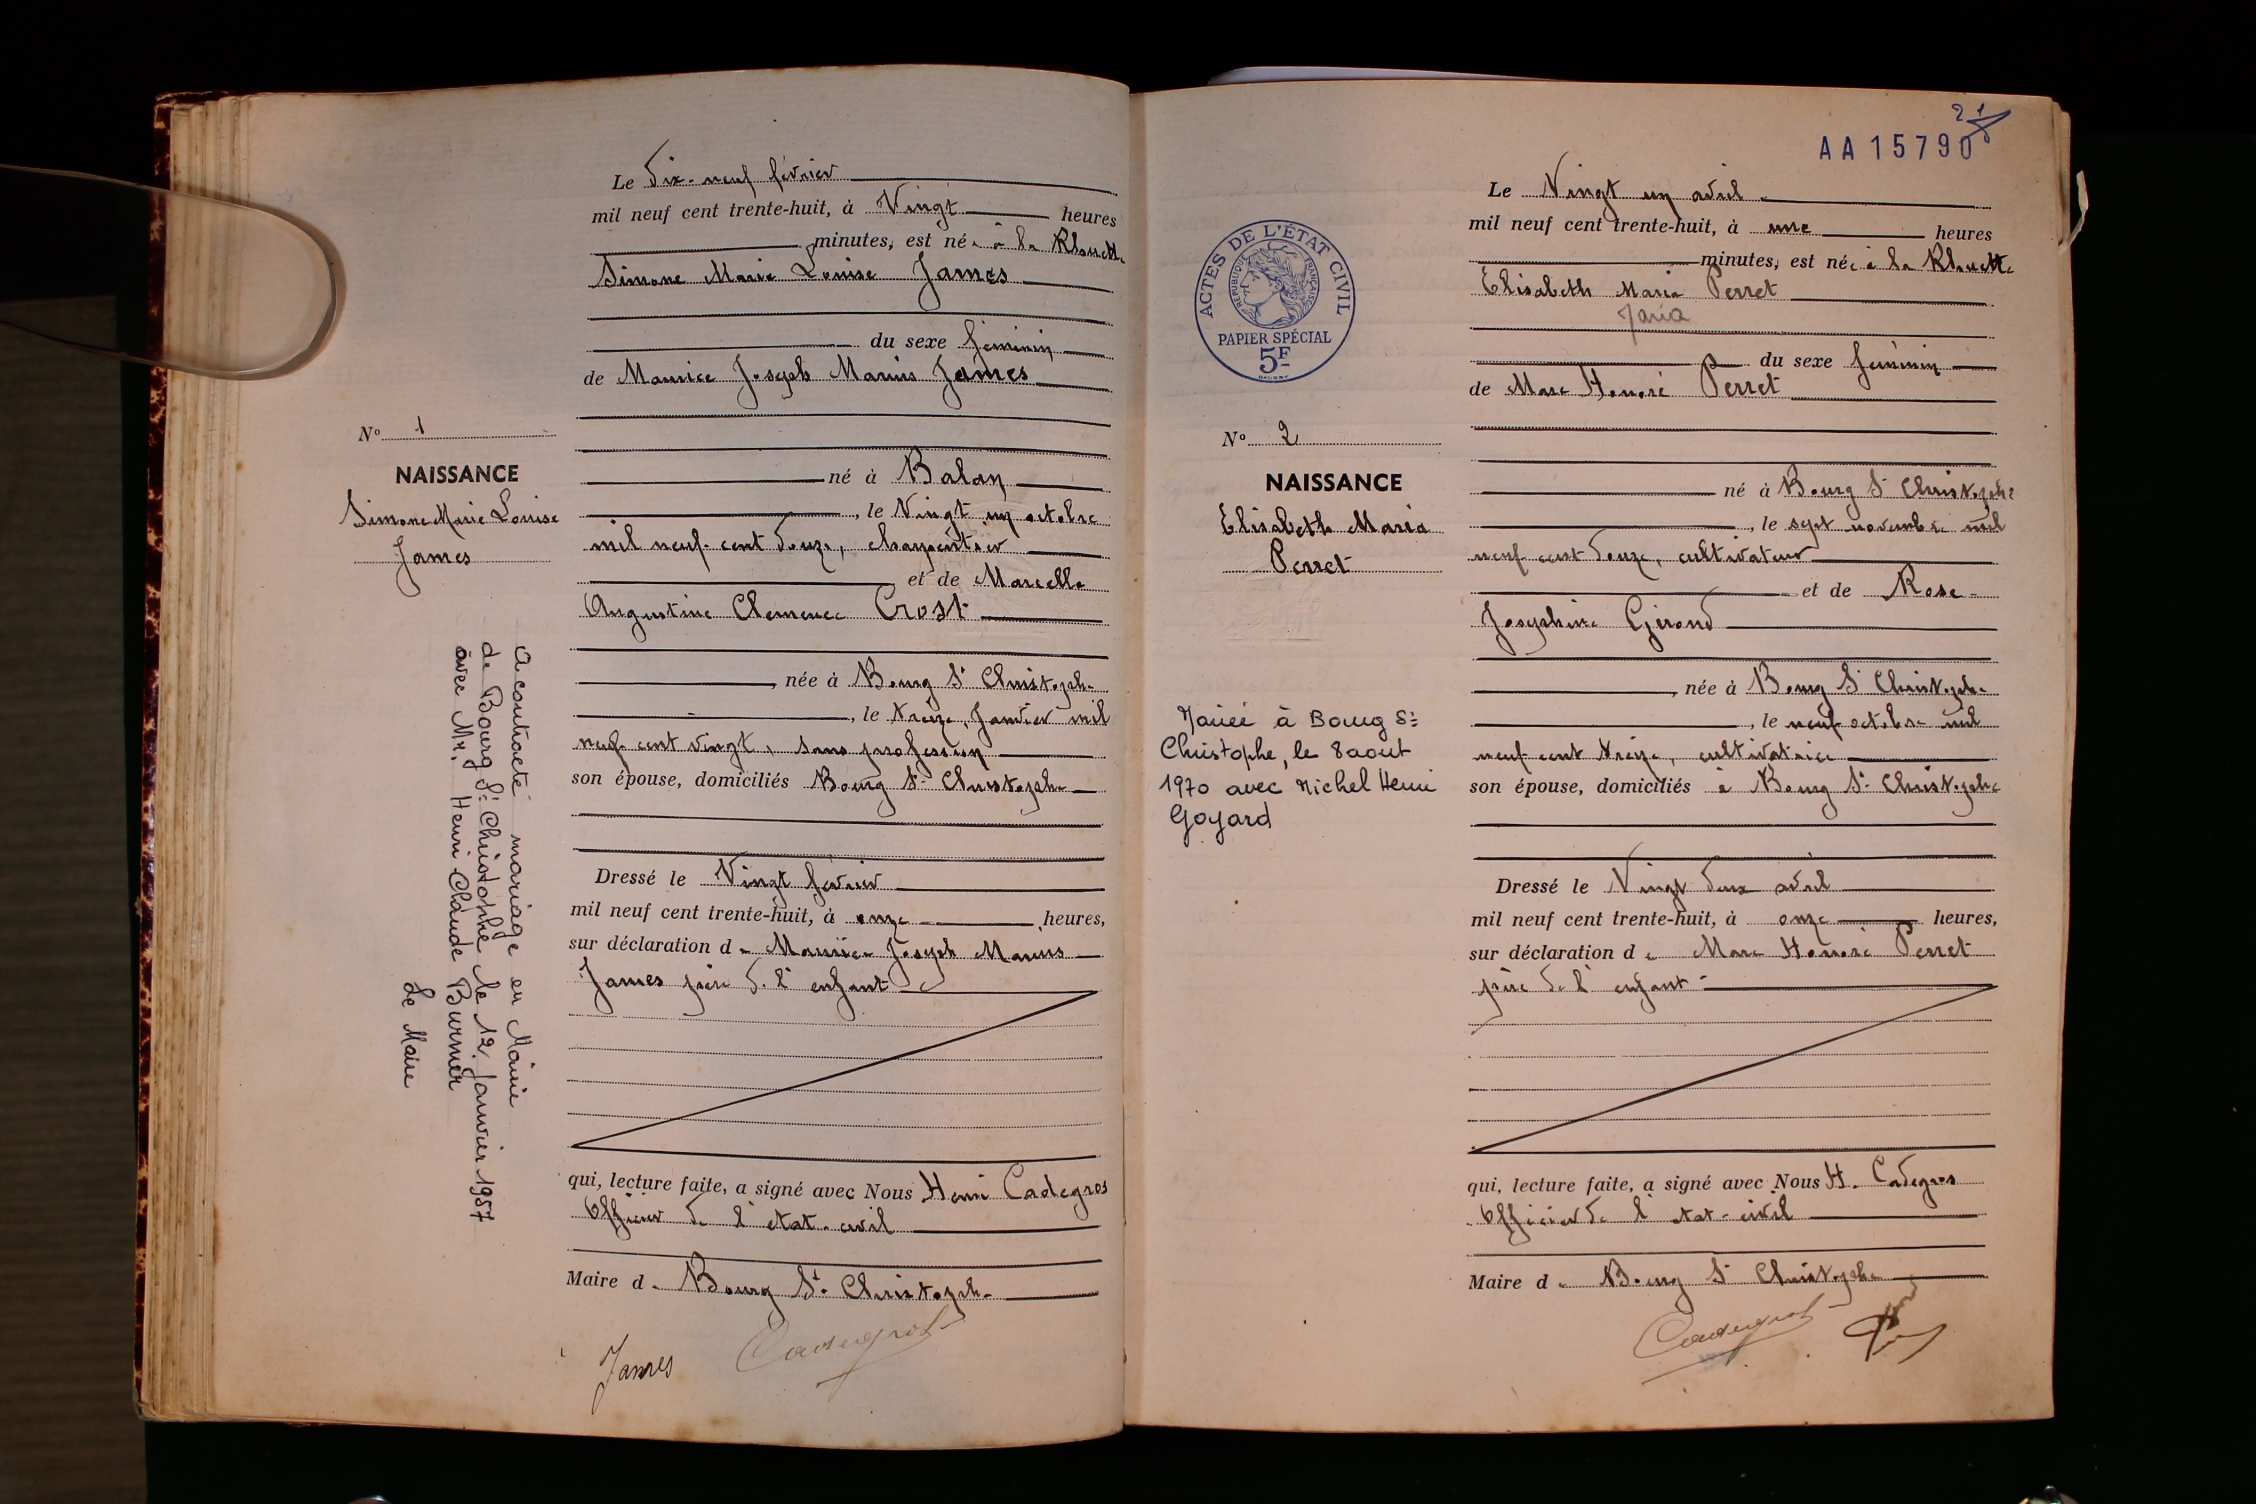 Le Dix-neuf février
mil neuf cent trente-huit, à Vingt heures
minutes, est née à la
Simone Marie Louise James
du sexe féminin
de Maurice Joseph Marius James
né à Balan
, le Vingt un octobre
mil neuf cent douze, charpentier
et de Marcelle
Augustine Clemence Crost
, née à Bourg St Christophe
, le treize Janvier mil
neuf cent vingt, sans profession
son épouse, domiciliés Bourg St Christophe
Dressé le Vingt février
mil neuf cent trente-huit, à onze heures,
sur déclaration de Maurice Joseph Marius
James père de l'enfant
qui, lecture faite, a signé avec Nous Henri Cadegros
Officier de l'etat-civil
Maire de Bourg St Christophe
James
No 1
NAISSANCE
Simone Marie Louise
James
A contracté mariage en Mairie
de Bourg St Christophe le 12 Janvier 1957
avec Mr. Henri Claude Burnier
Le Maire
21
AA 15790
Le Vingt un avril
mil neuf cent trente-huit, à une heures
minutes, est née à la
Elisabeth Maria Perret
Maria
du sexe féminin
de Marc Honoré Perret
né à Bourg St Christophe
, le sept novembre mil
neuf cent douze, cultivateur
et de Rose
Josephine Giroud
, née à Bourg St Christophe
, le neuf octobre mil
neuf cent treize, cultivatrice
son épouse, domiciliés à Bourg St Christophe
Dressé le Vingt deux avril
mil neuf cent trente-huit, à onze heures,
sur déclaration de Marc Honoré Perret
père de l'enfant
qui, lecture faite, a signé avec Nous H. Cadegros
Officier de l'etat-civil
Maire de Bourg St Christophe
ACTES DE L'ÉTAT CIVIL
RÉPUBLIQUE FRANÇAISE
PAPIER SPÉCIAL
5F
No 2
NAISSANCE
Elisabeth Maria
Perret
Mariée à Bourg St
Christophe, le 8 aout
1970 avec Michel Henri
Goyard